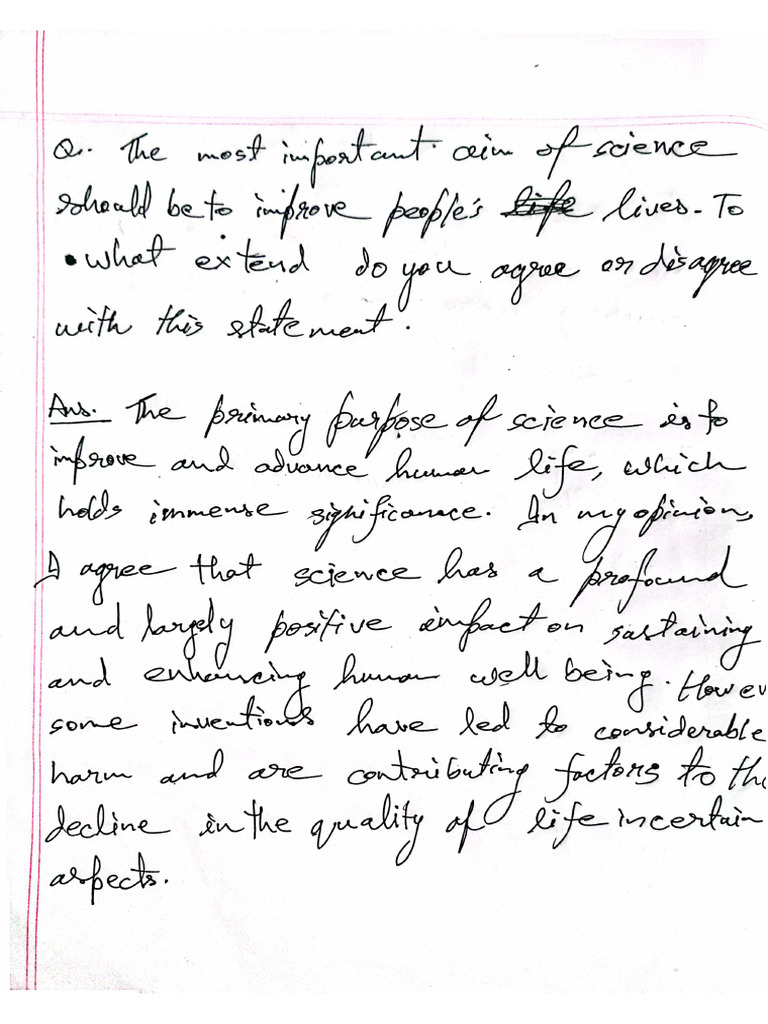 Q. The most important aim of science
should be to improve people's life lives. To
what extend do you agree or disagree
with this statement.
Ans. The primary purpose of science is to
improve and advance human life, which
holds immense significance. In my opinion,
I agree that science has a profound
and largely positive impact on sustaining
and enhancing human well being. Howev
some inventions have led to considerable
harm and are contributing factors to the
decline in the quality of life in certain
aspects.